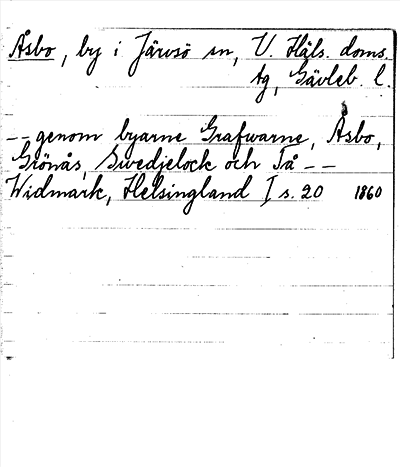 Åsbo, by i Järvsö sn, V. Häls. doms.
tg, Gävleb. l.
-- genom byarne Grafwarne, Åsbo,
Grönås, Swedjelock och Tå --
Widmark, Helsingland I s. 20 1860